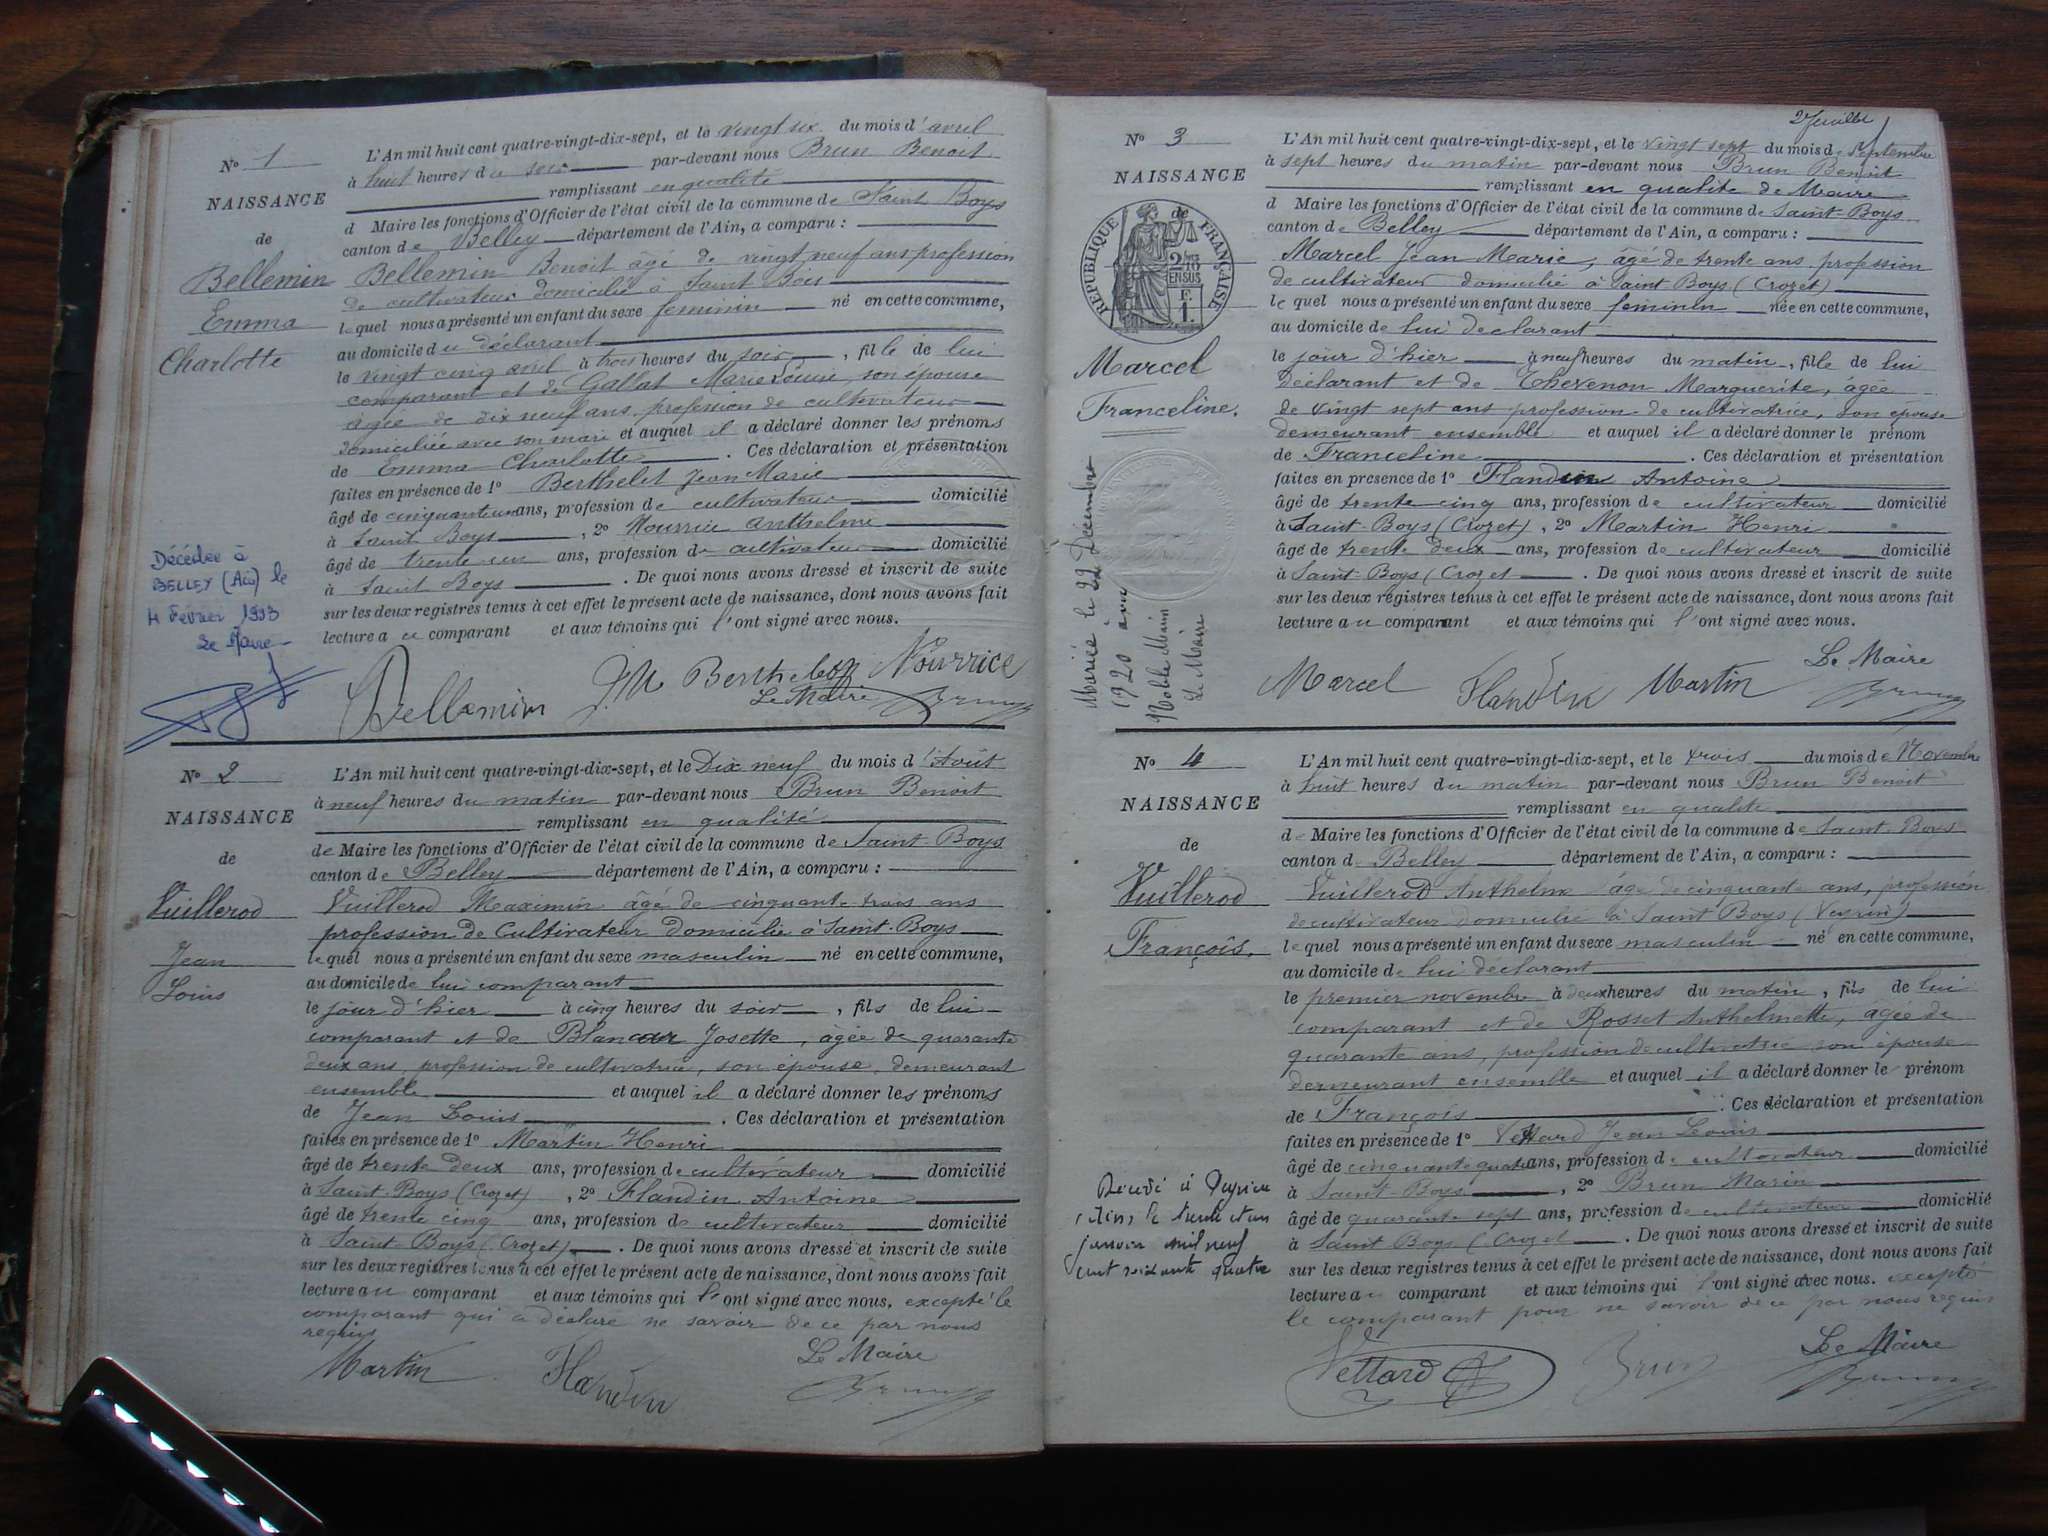 N° 1
NAISSANCE
de
Bellemin
Emma
Charlotte
L'An mil huit cent quatre-vingt-dix-sept, et le vingt six du mois d'avril
à huit heures du soir par-devant nous Brun Benoit
remplissant en qualité
d Maire les fonctions d'Officier de l'état civil de la commune de Saint Boys
canton de Belley département de l'Ain, a comparu :
Bellemin Benoit âgé de vingt neuf ans profession
de cultivateur domicilié à Saint Bois
lequel nous a présenté un enfant du sexe feminin né en cette commune,
au domicile du déclarant
le vingt cinq avril à trois heures du soir, fille de lui
comparant et de Gallat Marie Louise, son épouse
agée de dix neuf ans profession de cultivateur
domiciliée avec son mari et auquel il a déclaré donner les prénoms
de Emma Charlotte. Ces déclaration et présentation
faites en présence de 1° Berthelet Jean Marie
âgé de cinquante un ans, profession de cultivateur domicilié
à Saint Boys, 2° Nourrice Anthelme
âgé de trente un ans, profession de cultivateur domicilié
à Saint Boys. De quoi nous avons dressé et inscrit de suite
sur les deux registres tenus à cet effet le présent acte de naissance, dont nous avons fait
lecture a u comparant et aux témoins qui l'ont signé avec nous.
Décédée à
BELLEY (Ain) le
4 Février 1993
Le Maire
Bellemin J.M Berthelet Nourrice
Le Maire Brun
N° 2
NAISSANCE
de
Vuillerod
Jean
Louis
L'An mil huit cent quatre-vingt-dix-sept, et le Dix neuf du mois d'Août
à neuf heures du matin par-devant nous Brun Benoit
remplissant en qualité
de Maire les fonctions d'Officier de l'état civil de la commune de Saint Boys
canton de Belley département de l'Ain, a comparu :
Vuillerod Maximin âgé de cinquante trois ans
profession de Cultivateur domicilié à Saint-Boys
lequel nous a présenté un enfant du sexe masculin né en cette commune,
au domicile de lui comparant
le jour d'hier à cinq heures du soir, fils de lui
comparant et de Josette, âgée de quarante
deux ans, profession de cultivatrice, son épouse, demeurant
ensemble et auquel il a déclaré donner les prénoms
de Jean Louis. Ces déclaration et présentation
faites en présence de 1° Martin Henri
âgé de trente deux ans, profession de cultivateur domicilié
à Saint-Boys (Crozet), 2° Flandin Antoine
âgé de trente cinq ans, profession de cultivateur domicilié
à Saint-Boys (Crozet). De quoi nous avons dressé et inscrit de suite
sur les deux registres tenus à cet effet le présent acte de naissance, dont nous avons fait
lecture au comparant et aux témoins qui l'ont signé avec nous. excepté le
comparant qui a déclaré ne savoir de ce par nous
requis
Martin Flandin Le Maire
Brun
N° 3
NAISSANCE
de
RÉPUBLIQUE FRANÇAISE
2/10 EN SUS
F. 1.
Marcel
Franceline.
2e feuillet
L'An mil huit cent quatre-vingt-dix-sept, et le vingt sept du mois de Septembre
à sept heures du matin par-devant nous Brun Benoit
remplissant en qualité de Maire
d Maire les fonctions d'Officier de l'état civil de la commune de Saint-Boys
canton de Belley département de l'Ain, a comparu :
Marcel Jean Marie, âgé de trente ans profession
de cultivateur domicilié à Saint Boys (Crozet)
lequel nous a présenté un enfant du sexe feminin née en cette commune,
au domicile de lui déclarant
le jour d'hier à neuf heures du matin, fille de lui
déclarant et de Thevenon Marguerite, âgée
de vingt sept ans profession de cultivatrice, son épouse
demeurant ensemble et auquel il a déclaré donner le prénom
de Franceline. Ces déclaration et présentation
faites en présence de 1° Flandin Antoine
âgé de trente cinq ans, profession de cultivateur domicilié
à Saint-Boys (Crozet), 2° Martin Henri
âgé de trente deux ans, profession de cultivateur domicilié
à Saint-Boys (Crozet. De quoi nous avons dressé et inscrit de suite
sur les deux registres tenus à cet effet le présent acte de naissance, dont nous avons fait
lecture a u comparant et aux témoins qui l'ont signé avec nous.
Mariée le 22 Décembre
1920 avec
Noble Marin
Le Maire
Marcel Flandin Martin Le Maire
Brun
N° 4
NAISSANCE
de
Vuillerod
François.
L'An mil huit cent quatre-vingt-dix-sept, et le trois du mois de Novembre
à huit heures du matin par-devant nous Brun Benoit
remplissant en qualité
de Maire les fonctions d'Officier de l'état civil de la commune de Saint-Boys
canton de Belley département de l'Ain, a comparu :
Vuillerod Anthelme âgé de cinquante ans, profession
de cultivateur domicilié à Saint Boys (Veyrin)
lequel nous a présenté un enfant du sexe masculin né en cette commune,
au domicile de lui déclarant
le premier novembre à deux heures du matin, fils de lui
comparant et de Rosset Anthelmette, âgée de
quarante ans, profession de cultivatrice son épouse
demeurant ensemble et auquel il a déclaré donner le prénom
de François. Ces déclaration et présentation
faites en présence de 1° Vettard Jean Louis
âgé de cinquante quatre ans, profession de cultivateur domicilié
à Saint-Boys, 2° Brun Marin
âgé de quarante sept ans, profession de cultivateur domicilié
à Saint Boys (Crozet. De quoi nous avons dressé et inscrit de suite
sur les deux registres tenus à cet effet le présent acte de naissance, dont nous avons fait
lecture au comparant et aux témoins qui l'ont signé avec nous. excepté
le comparant pour ne savoir de ce par nous requis
Décédé à
le trente et un
janvier mil neuf
cent soixante quatre
Vettard Brun Le Maire
Brun